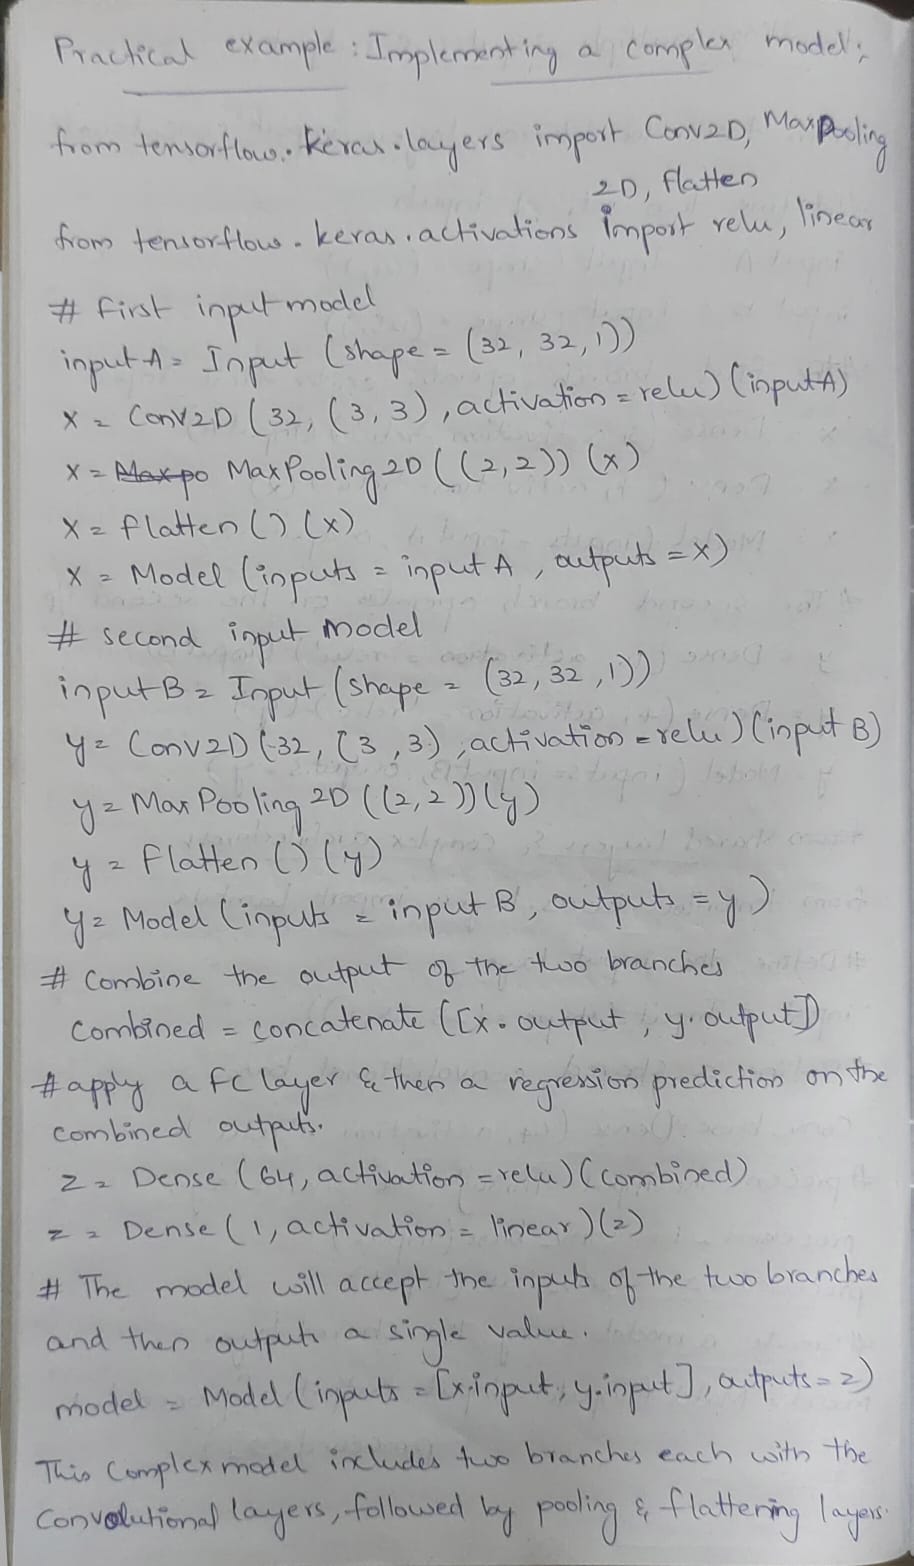 Practical example: Implementing a complex model:
from tensorflow.keras.layers import Conv2D, MaxPooling
2D, flatten
from tensorflow.keras.activations import relu, linear
# first input model
inputA = Input (shape = (32, 32, 1))
x = Conv2D (32, (3, 3), activation = relu) (inputA)
x = Maxpo MaxPooling2D ((2,2)) (x)
x = flatten () (x)
x = Model (inputs = input A, outputs = x)
# second input model
inputB = Input (shape = (32, 32, 1))
y = Conv2D (32, (3, 3), activation = relu) (input B)
y = MaxPooling 2D ((2,2)) (y)
y = flatten () (y)
y = Model (inputs = input B, outputs = y)
# Combine the output of the two branches
Combined = concatenate ([x.output, y.output])
# apply a fc layer & then a regression prediction on the
combined outputs.
z = Dense (64, activation = relu) (combined)
z = Dense (1, activation = linear) (z)
# The model will accept the inputs of the two branches
and then outputs a single value.
model = Model (inputs = [x.input, y.input], outputs = z)
This Complex model includes two branches each with the
Convolutional layers, followed by pooling & flattering layers.